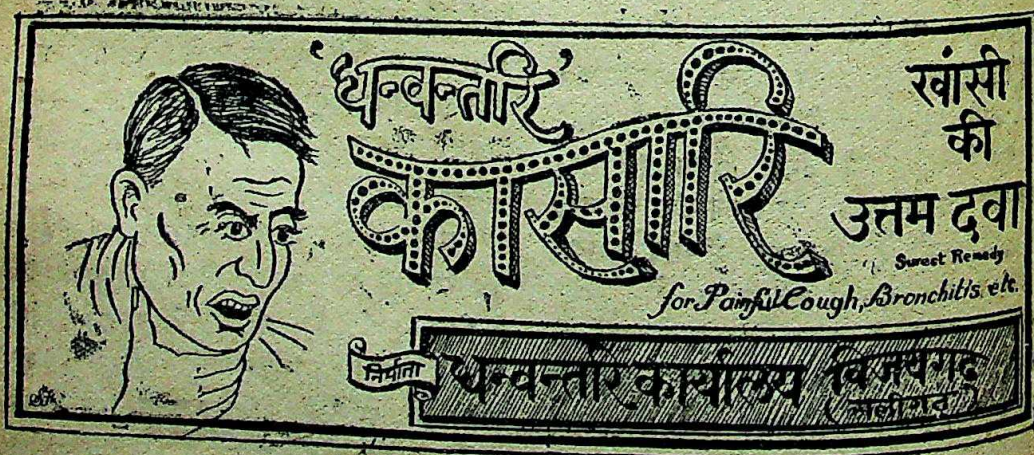 'धन्वन्तरि'
कासारि
खांसी
की
उत्तम दवा
Sureet Remedy
for Painful Cough, Bronchitis, etc.
निर्माता
धन्वन्तरि कार्यालय विजयगढ़
(अलीगढ़)